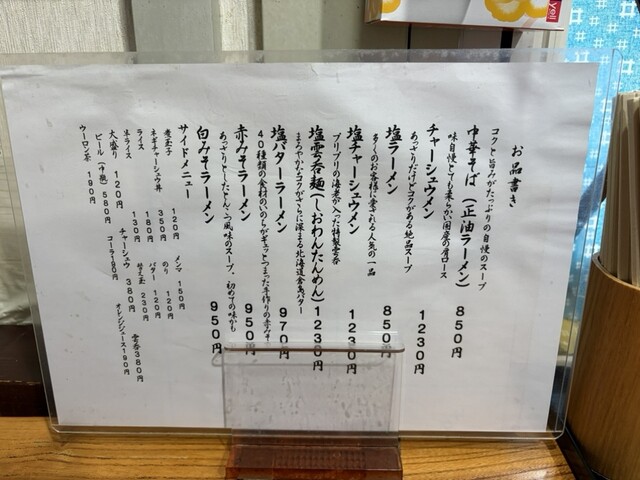 お品書き
コクと旨みがたっぷりの自慢のスープ
中華そば(正油ラーメン) 850円
味自慢とても柔らかい国産の肩ロース
チャーシュウメン 1230円
あっさりだけどコクがある絶品スープ
塩ラーメン 850円
多くのお客様に愛される人気の一品
塩チャーシュウメン 1230円
プリプリの海老が入った特製雲呑
塩雲呑麺(しおわんたんめん) 1230円
まろやかなコクがさらに深まる北海道産バター
塩バターラーメン 970円
40種類の食材のいのちがギュッとつまった手作りの赤みそ
赤みそラーメン 950円
あっさりとしたたんたん風味のスープ、初めての味かも
白みそラーメン 950円
サイドメニュー
煮玉子 120円 メンマ 150円
ネギチャーシュウ丼 350円 のり 120円
ライス 180円 バター 120円
半ライス 130円 替え玉 230円 雲呑 380円
大盛り 120円 チャーシュウ 380円
ビール(中瓶) 580円 コーラ 190円 オレンジジュース 190円
ウーロン茶 190円
yell